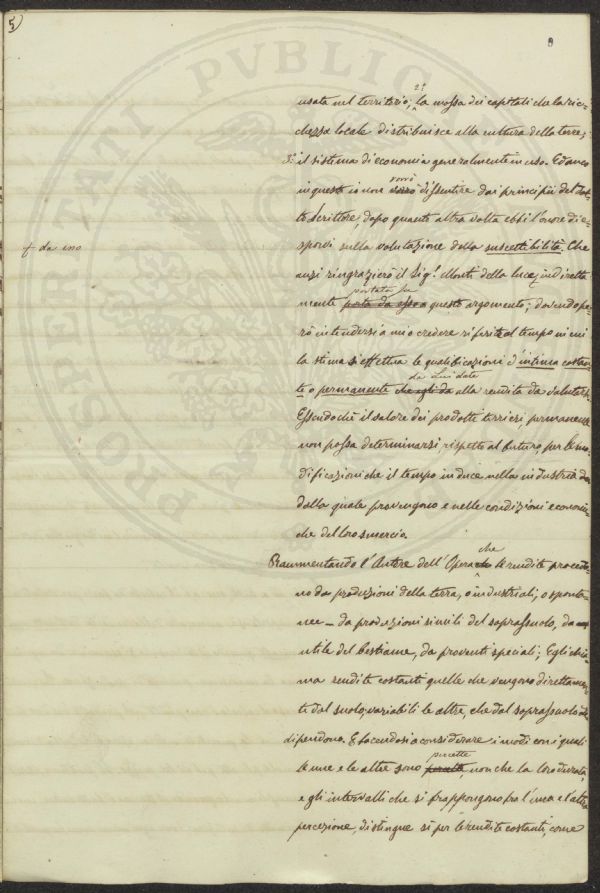 5)
8
usata nel territorio; 2.° la mossa dei capitali che la ric-
chezza locale distribuisce alla cultura della terre;
3.° il sistema di economia generalmente in uso. Ed anco
in questo io non vorrò dissentire dai principii del
to Scrittore, dopo quanto altra volta ebbi l'onore di e-
sporvi sulla valutazione della suscettibilità. Che
da esso
anzi ringrazierò il Sig.r Monti della luce indiretta
mente portata su questo argomento; dovendo pe-
rò intendersi a mio credere riferite al tempo in cui
la stima si effettua le qualificazioni d'intima costan-
te o permanente da Lui date alla rendita da valutarsi.
Essendochè il valore dei prodotti terrieri permanente
non possa determinarsi rispetto al futuro, per le mo-
dificazioni che il tempo induce nella industria
dalla quale provengono e nelle condizioni economi-
che del loro smercio.
Rammentando l'Autore dell'Opera che le rendite procedo-
no da produzioni della terra, o industriali, o sponta-
nee — da produzioni simili del soprassuolo, da
utile del bestiame, da proventi speciali; Egli chia-
ma rendite costanti quelle che vengono direttamen-
te dal suolo, variabili le altre, che dal soprassuolo
dipendono. E facendosi a considerare i modi con i quali
le une e le altre sono percette non che la loro durata,
e gli intervalli che si frappongono fra l'una e l'altra
percezione, distingue sì per le rendite costanti, come
PROSPERITATI PVBLICAE